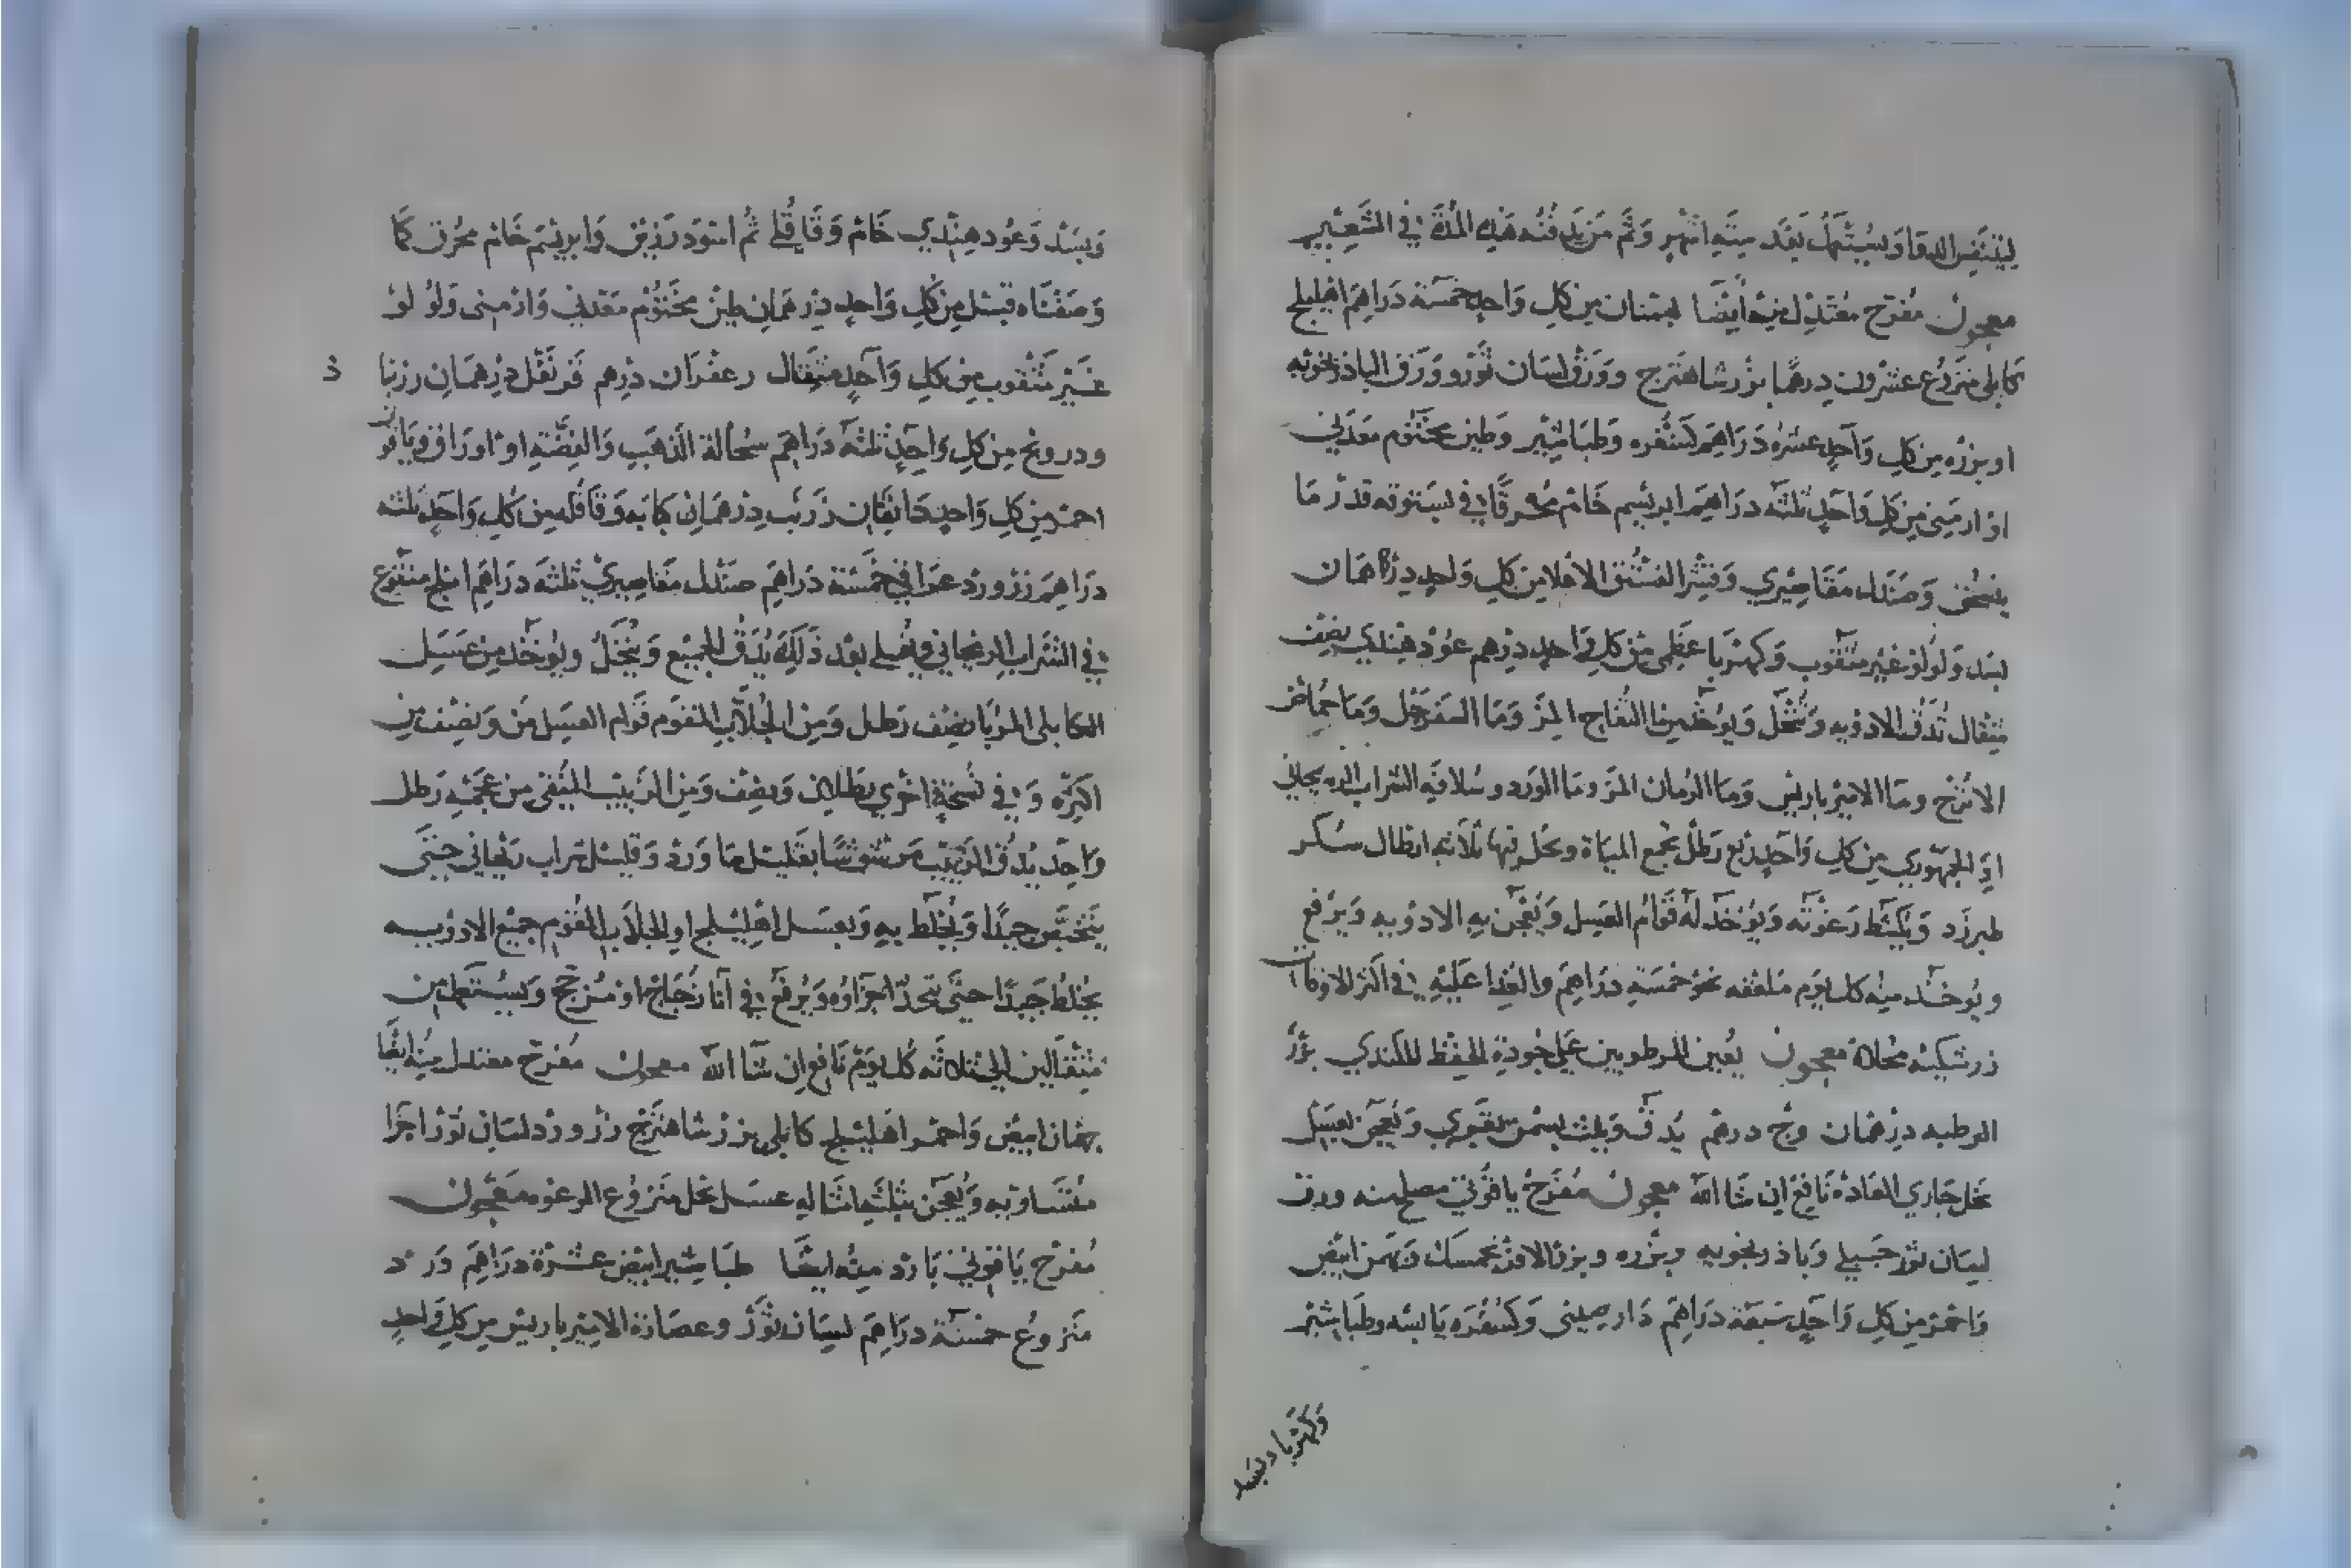 ليتنفس الدوا ويستعمل بعد ستة اشهر وثم من يدفنه هذه المدة في الشعير
معجون مفرح معتدل منه أيضا بهمنان من كل واحد خمسة دراهم اهليلج
كابلي منزوع عشرون درهما بزر شاهترج وورق لسان ثور وورق الباذرنجويه
او بزره من كل واحد عشرة دراهم كسفره وطباشير وطين مختوم معدني
او ارمني من كل واحد ثلثة دراهم ابريسم خام محرقا في بستوقه قدر ما
ينسحق وصندل مقاصيري وقشر الفستق الاعلا من كل واحد درهمان
بسد ولولو غير مثقوب وكهربا عظمي من كل واحد درهم عود هندي نصف
مثقال تدق الادويه وتنخل ويوخذ من ما التفاح المز وما السفرجل وما حماض
الاترج وما الامير باريس وما الرمان المز وما الورد وسلافه الشراب الريحاني
او الجمهوري من كل واحد ربع رطل تجمع المياه ويحل فيها ثلاثه ارطال سكر
طبرزد ويكشط رغوته ويوخذ له قوام العسل ويعجن به الادويه ويرفع
ويوخذ منه كل يوم ملعقه نحو خمسة دراهم والغدا عليه في اكثر الاوقات
زرشكيه محلاة معجون يعين المرطوبين على جودة الحفظ للكندي بزر
الرطبه درهمان وج درهم يدق ويلت بسمن بقري ويعجن بعسل
نحل جاري العاده نافع ان شا الله معجون مفرح ياقوتي مصلح منه ورق
لسان ثور جبلي وباذرنجويه وبزره وبزر الافرنجمسك وبهمن ابيض
واحمر من كل واحد سبعة دراهم دارصيني وكسفره يابسه وطباشير
وكهربا وبسد
وبسد وعود هندي خام وقاقلي ثم اسود رزين وابريسم خام محرق كما
وصفناه قبل من كل واحد درهمان طين مختوم معدني وارمني ولولو
غير مثقوب من كل واحد مثقال زعفران درهم قرنفل درهمان زرنبا
د
ودرونج من كل واحد ثلثة دراهم سحالة الذهب والفضة او اوراق وياقوت
احمر من كل واحد دانقان زرنب درهمان كبابه وقاقله من كل واحد ثلثه
دراهم زر ورد عراقي خمسة دراهم صندل مقاصيري ثلثه دراهم املج منقوع
في الشراب الريحاني ويغلي بعد ذلك يدق الجميع وينخل ويوخذ من عسل
الكابلي المربا نصف رطل ومن الجلاب المقوم قوام العسل من ونصف من
الكره وفي نسخة اخرى رطلان ونصف ومن الزبيب المنقى من عجمه رطل
واحد يدق الزبيب مرشوشا بقليل ما ورد وقليل شراب ريحاني حتى
يتخبص جيدا ويخلط به وبعسل اهليلج او الجلاب المقوم جميع الادويه
يخلط جيدا حتى تتحد اجزاوه ويرفع في انا زجاج او مزجج ويستعمل من
مثقالين الى ثلاثه كل يوم نافع ان شا الله معجون مفرح معتدل منه ايضا
بهمنان ابيض واحمر اهليلج كابلي بزر شاهترج زر ورد لسان ثور اجزا
متساويه ويعجن بثلثه امثاله عسل نحل منزوع الرغوه معجون
مفرح ياقوتي بارد منه ايضا طباشير ابيض عشرة دراهم ورد
منزوع خمسة دراهم لسان ثور وعصارة الامير باريس من كل واحد